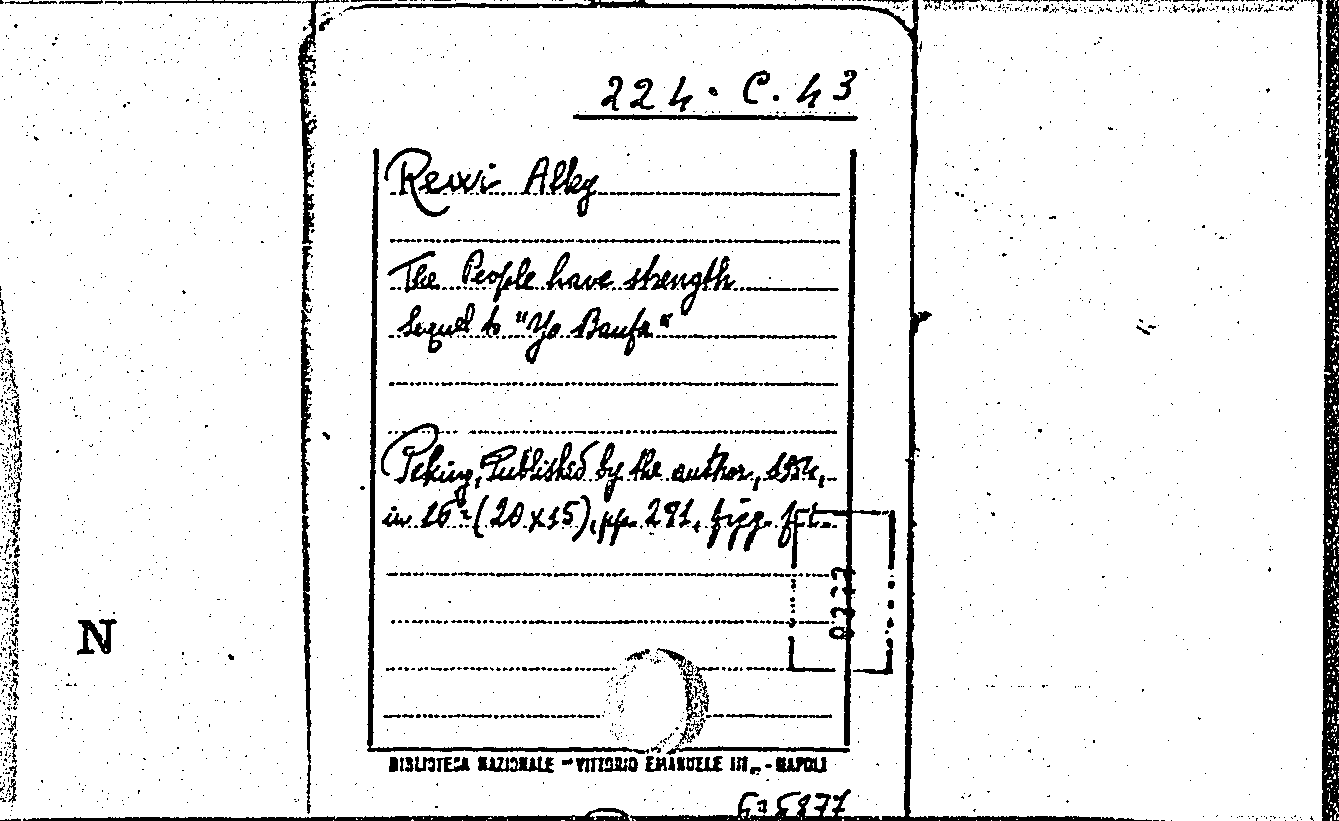 224. C. 43
Rewi Alley
The People have strength
Sequel to "Yo Banfa"
Peking, Published by the author, 1954,
in 16° (20 x 15), pp. 281, figg. ft.
N
BIBLIOTECA NAZIONALE "VITTORIO EMANUELE III„ - NAPOLI